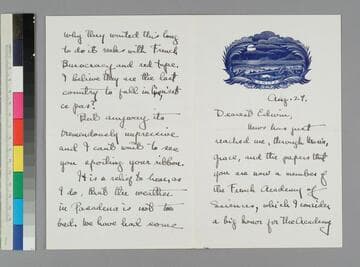 Aug. 29.
Dearest Edwin,
News has just
reached me, through
Grace, and the papers that
you are now a member of
the French Academy of
Sciences, which I consider
a big honor for the Academy
why they waited this long
to do it reeks with French
Buracracy and red-tape.
I believe they are the last
country to fall in line, n'est
ce pas?
But anyway its
tremendously impressive
and I can't wait to see
you sporting your ribbon.
It is a relief to hear, as
I do, that the weather
in Pasadena is not too
bad. We have had some